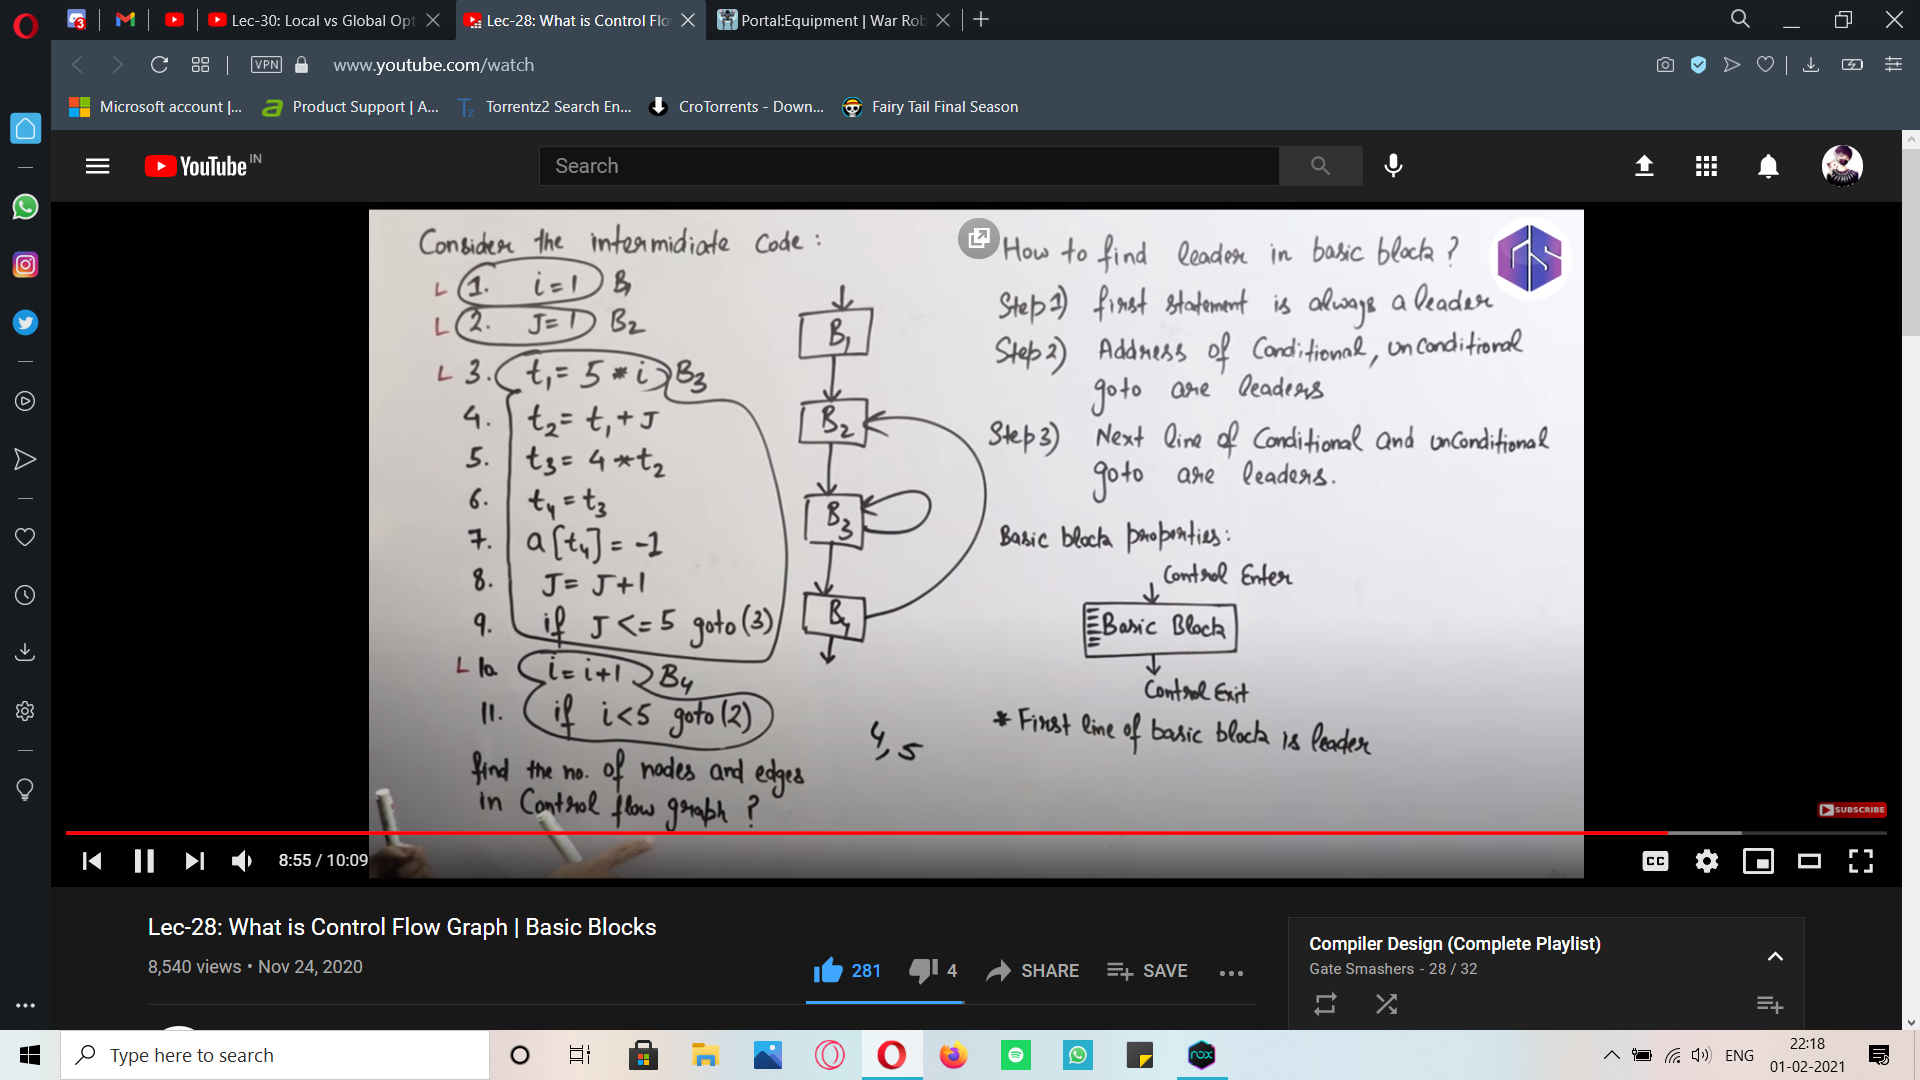 Lec-30: Local vs Global Opt
Lec-28: What is Control Flo
Portal:Equipment | War Rob
VPN
www.youtube.com/watch
Microsoft account |...
Product Support | A...
Torrentz2 Search En...
CroTorrents - Down...
Fairy Tail Final Season
YouTube IN
Search
Consider the intermidiate Code :
L 1. i = 1 B1
L 2. J = 1 B2
L 3. t1 = 5 * i B3
4. t2 = t1 + J
5. t3 = 4 * t2
6. t4 = t3
7. a[t4] = -1
8. J = J+1
9. if J <= 5 goto (3)
L 10. i = i+1 B4
11. if i<5 goto (2)
find the no. of nodes and edges
in Control flow graph ?
B1
B2
B3
B4
4, 5
How to find leader in basic block ?
Step 1) first statement is always a leader
Step 2) Address of Conditional, unConditional
goto are leaders
Step 3) Next line of Conditional and unConditional
goto are leaders.
Basic block properties :
Control Enter
Basic Block
Control Exit
* First line of basic block is leader
SUBSCRIBE
8:55 / 10:09
CC
Lec-28: What is Control Flow Graph | Basic Blocks
8,540 views • Nov 24, 2020
281
4
SHARE
SAVE
Compiler Design (Complete Playlist)
Gate Smashers - 28 / 32
Type here to search
nox
ENG
22:18
01-02-2021